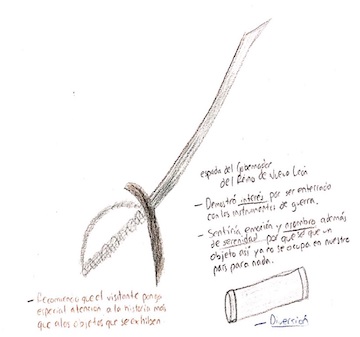 espada del Gobernador
del Reino de Nuevo León
- Demostró interés por ser enterrado
con los instrumentos de guerra.
- Sentiría emoción y asombro además
de serenidad por que sé que un
objeto así ya no se ocupa en nuestro
país para nada.
- Recomiendo que el visitante ponga
especial atención a la historia más
que a los objetos que se exhiben.
- Diversión